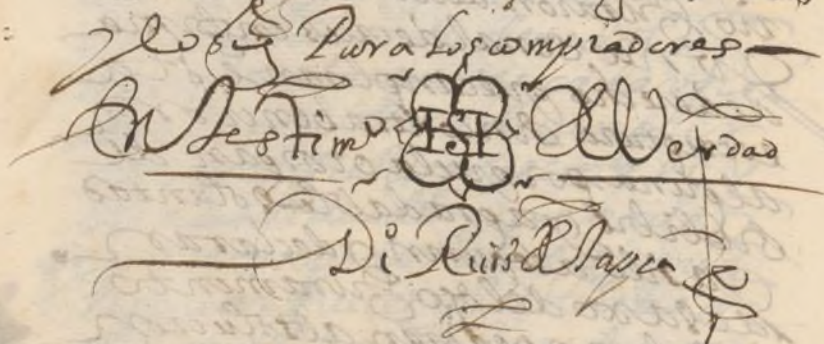 Para los compradores
En testimº de Verdad
Dº Ruis de Tapia